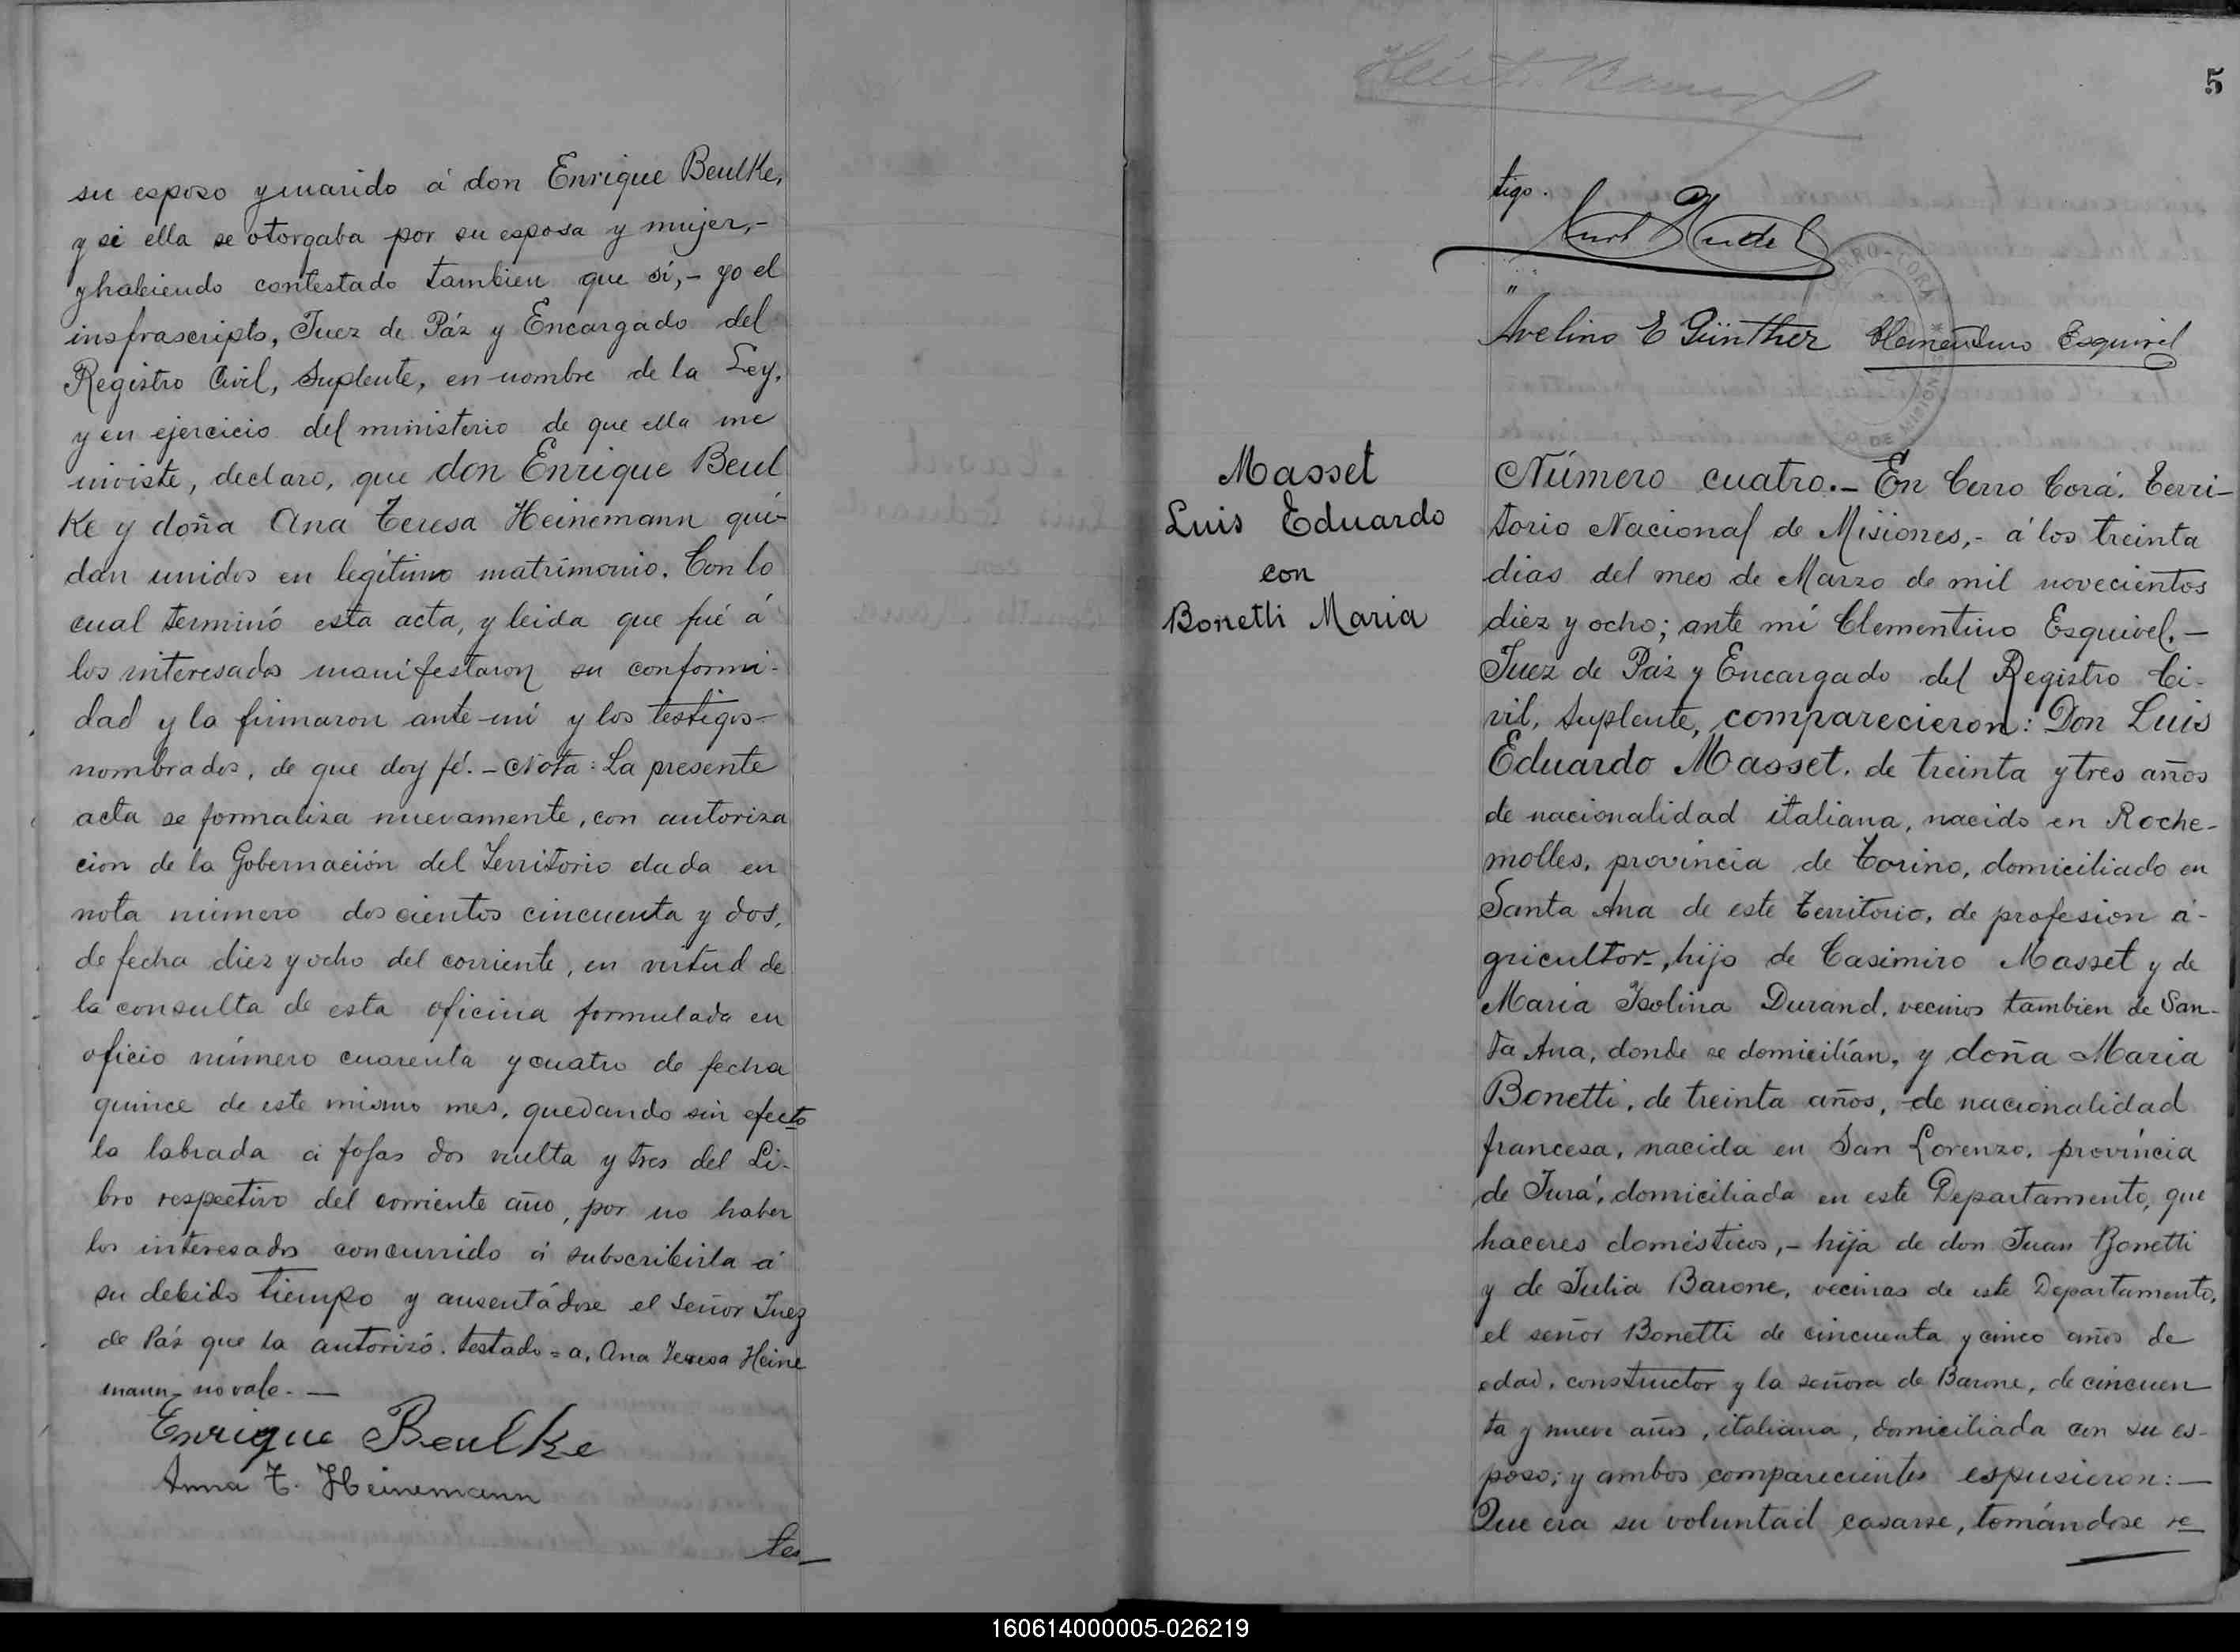 su esposo y marido á don Enrique Beulke,
y si ella se otorgaba por su esposa y mujer,-
y habiendo contestado tambien que sí,- yo el
insfrascripto, Juez de Páz y Encargado del
Registro Civil, Suplente, en nombre de la Ley,
y en ejercicio del ministerio de que ella me
inviste, declaro, que don Enrique Beul
ke y doña Ana Teresa Heinemann que-
dan unidos en legítimo matrimonio. Con lo
cual terminó esta acta, y leida que fué á
los interesados manifestaron su conformi-
dad y la firmaron ante mí y los testigos-
nombrados, de que doy fé.- Nota: La presente
acta se formaliza nuevamente, con autoriza
cion de la Gobernación del Territorio dada en
nota número doscientos cincuenta y dos,
de fecha diez y ocho del corriente, en virtud de
la consulta de esta oficina formulada en
oficio número cuarenta y cuatro de fecha
quince de este mismo mes, quedando sin efecto
la labrada á fojas dos vuelta y tres del Li-
bro respectivo del corriente año, por no haber
los interesados concurrido á subscribirla á
su debido tiempo y ausentádose el Señor Juez
de Páz que la autorizó. Testado = a, Ana Teresa Heine
mann - no vale. —
Enrique Beulke
Anna T. Heinemann
tes-
5
tigo.
Avelino E Günther Clementino Esquivel
CERRO-CORÁ
DE MISIONES
Masset
Luis Eduardo
con
Bonetti Maria
Número cuatro.- En Cerro Corá, Terri-
torio Nacional de Misiones,- á los treinta
dias del mes de Marzo de mil novecientos
diez y ocho; ante mí Clementino Esquivel,-
Juez de Páz y Encargado del Registro Ci-
vil, Suplente, comparecieron: Don Luis
Eduardo Masset, de treinta y tres años
de nacionalidad italiana, nacido en Roche-
molles, provincia de Torino, domiciliado en
Santa Ana de este Territorio, de profesion a-
gricultor-, hijo de Casimiro Masset y de
Maria Isolina Durand, vecinos tambien de San-
ta Ana, donde se domicilían, y doña Maria
Bonetti, de treinta años, de nacionalidad
francesa, nacida en San Lorenzo, provincia
de Jurá, domiciliada en este Departamento, que
haceres domésticos,- hija de don Juan Bonetti
y de Julia Barone, vecinos de este Departamento,
el señor Bonetti de cincuenta y cinco años de
edad, constructor y la señora de Barone, de cincuen
ta y nueve años, italiana, domiciliada con su es-
poso; y ambos comparecientes espusieron:-
Que era su voluntad casarse, tomándose re-
160614000005-026219